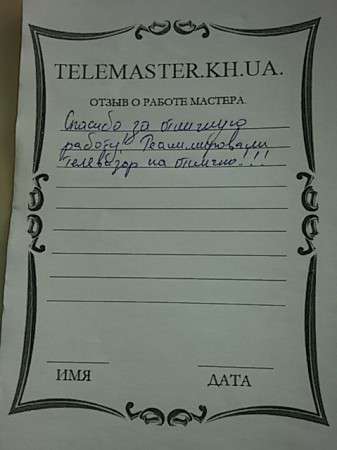 TELEMASTER.KH.UA.
ОТЗЫВ О РАБОТЕ МАСТЕРА.
Спасибо за отличную
работу!
телевизор на отлично!!!
ИМЯ
ДАТА